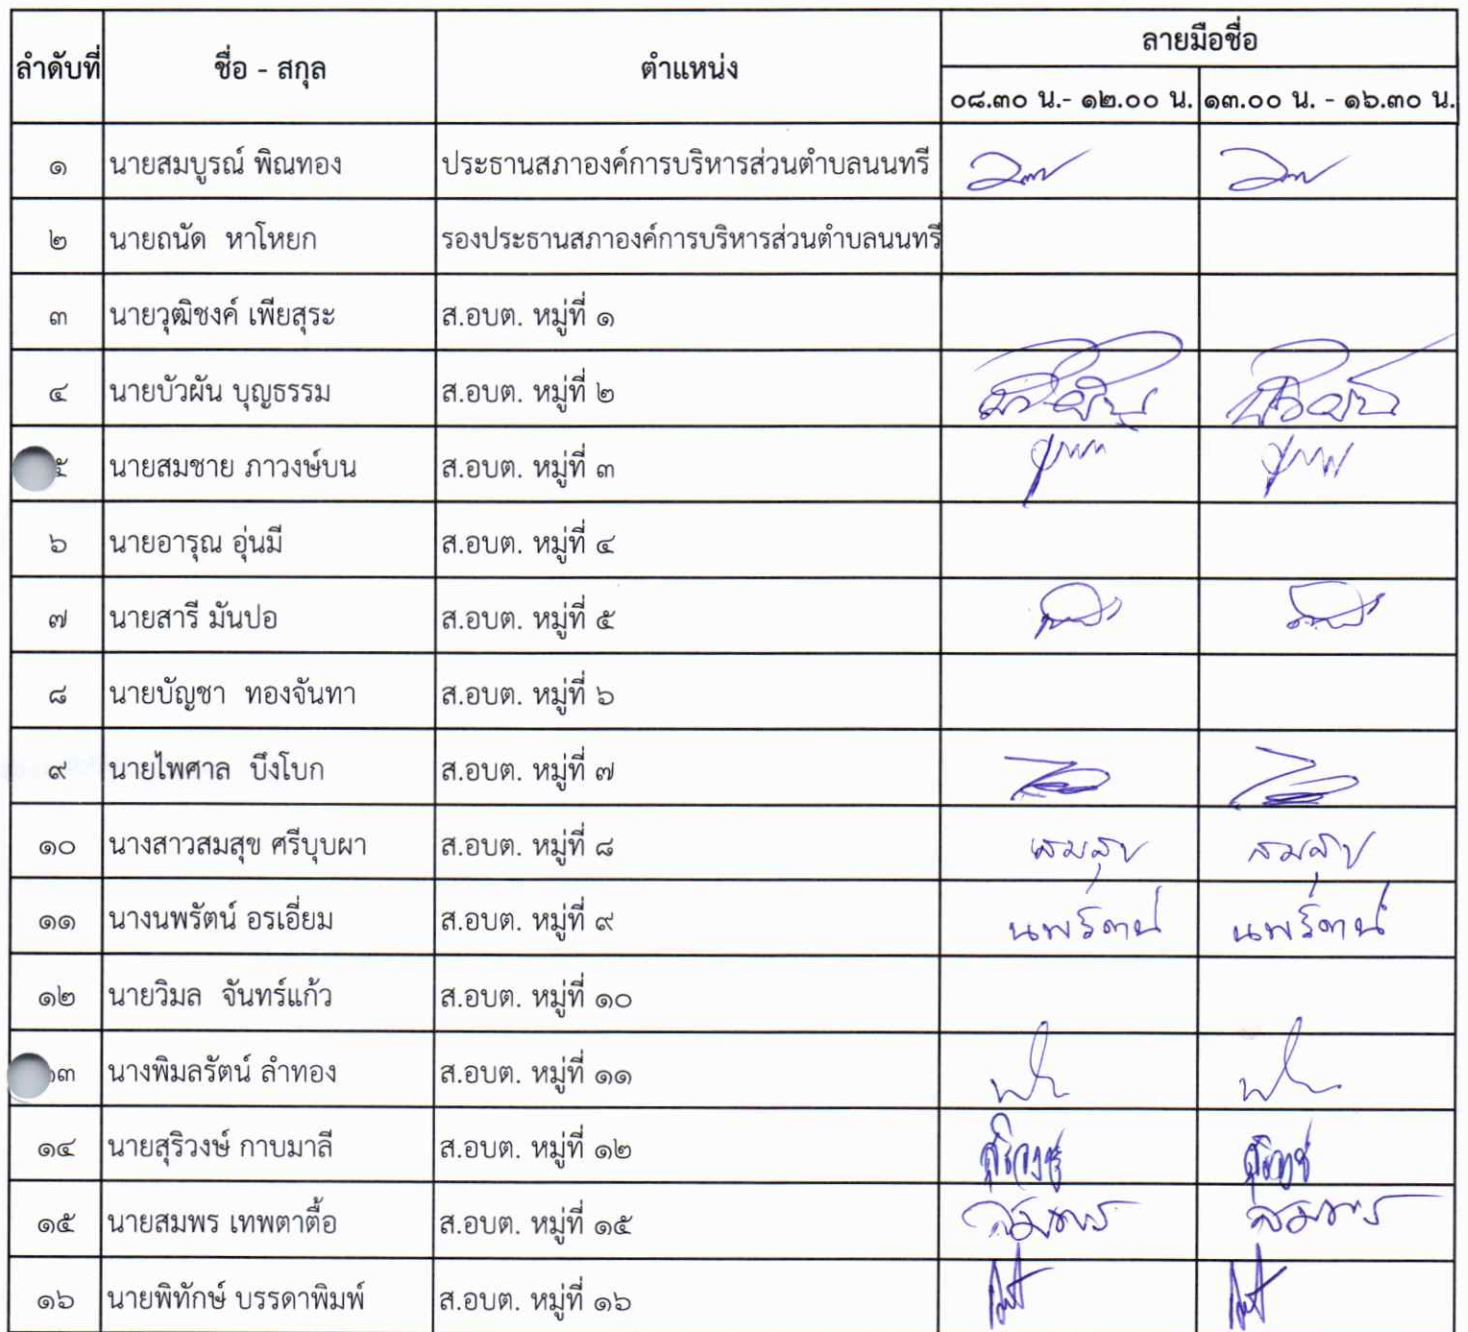 ลำดับที่ ชื่อ - สกุล ตำแหน่ง ลายมือชื่อ
๐๘.๓๐ น.- ๑๒.๐๐ น. ๑๓.๐๐ น. - ๑๖.๓๐ น.
๑ นายสมบูรณ์ พิณทอง ประธานสภาองค์การบริหารส่วนตำบลนนทรี
๒ นายถนัด หาโหยก รองประธานสภาองค์การบริหารส่วนตำบลนนทรี
๓ นายวุฒิชงค์ เพียสุระ ส.อบต. หมู่ที่ ๑
๔ นายบัวผัน บุญธรรม ส.อบต. หมู่ที่ ๒
๕ นายสมชาย ภาวงษ์บน ส.อบต. หมู่ที่ ๓
๖ นายอารุณ อุ่นมี ส.อบต. หมู่ที่ ๔
๗ นายสารี มันปอ ส.อบต. หมู่ที่ ๕
๘ นายบัญชา ทองจันทา ส.อบต. หมู่ที่ ๖
๙ นายไพศาล บึงโบก ส.อบต. หมู่ที่ ๗
๑๐ นางสาวสมสุข ศรีบุบผา ส.อบต. หมู่ที่ ๘ สมสุข สมสุข
๑๑ นางนพรัตน์ อรเอี่ยม ส.อบต. หมู่ที่ ๙ นพรัตน์ นพรัตน์
๑๒ นายวิมล จันทร์แก้ว ส.อบต. หมู่ที่ ๑๐
๑๓ นางพิมลรัตน์ ลำทอง ส.อบต. หมู่ที่ ๑๑
๑๔ นายสุริวงษ์ กาบมาลี ส.อบต. หมู่ที่ ๑๒ สุริวงษ์ สุริวงษ์
๑๕ นายสมพร เทพตาตื้อ ส.อบต. หมู่ที่ ๑๕ สมพร สมพร
๑๖ นายพิทักษ์ บรรดาพิมพ์ ส.อบต. หมู่ที่ ๑๖